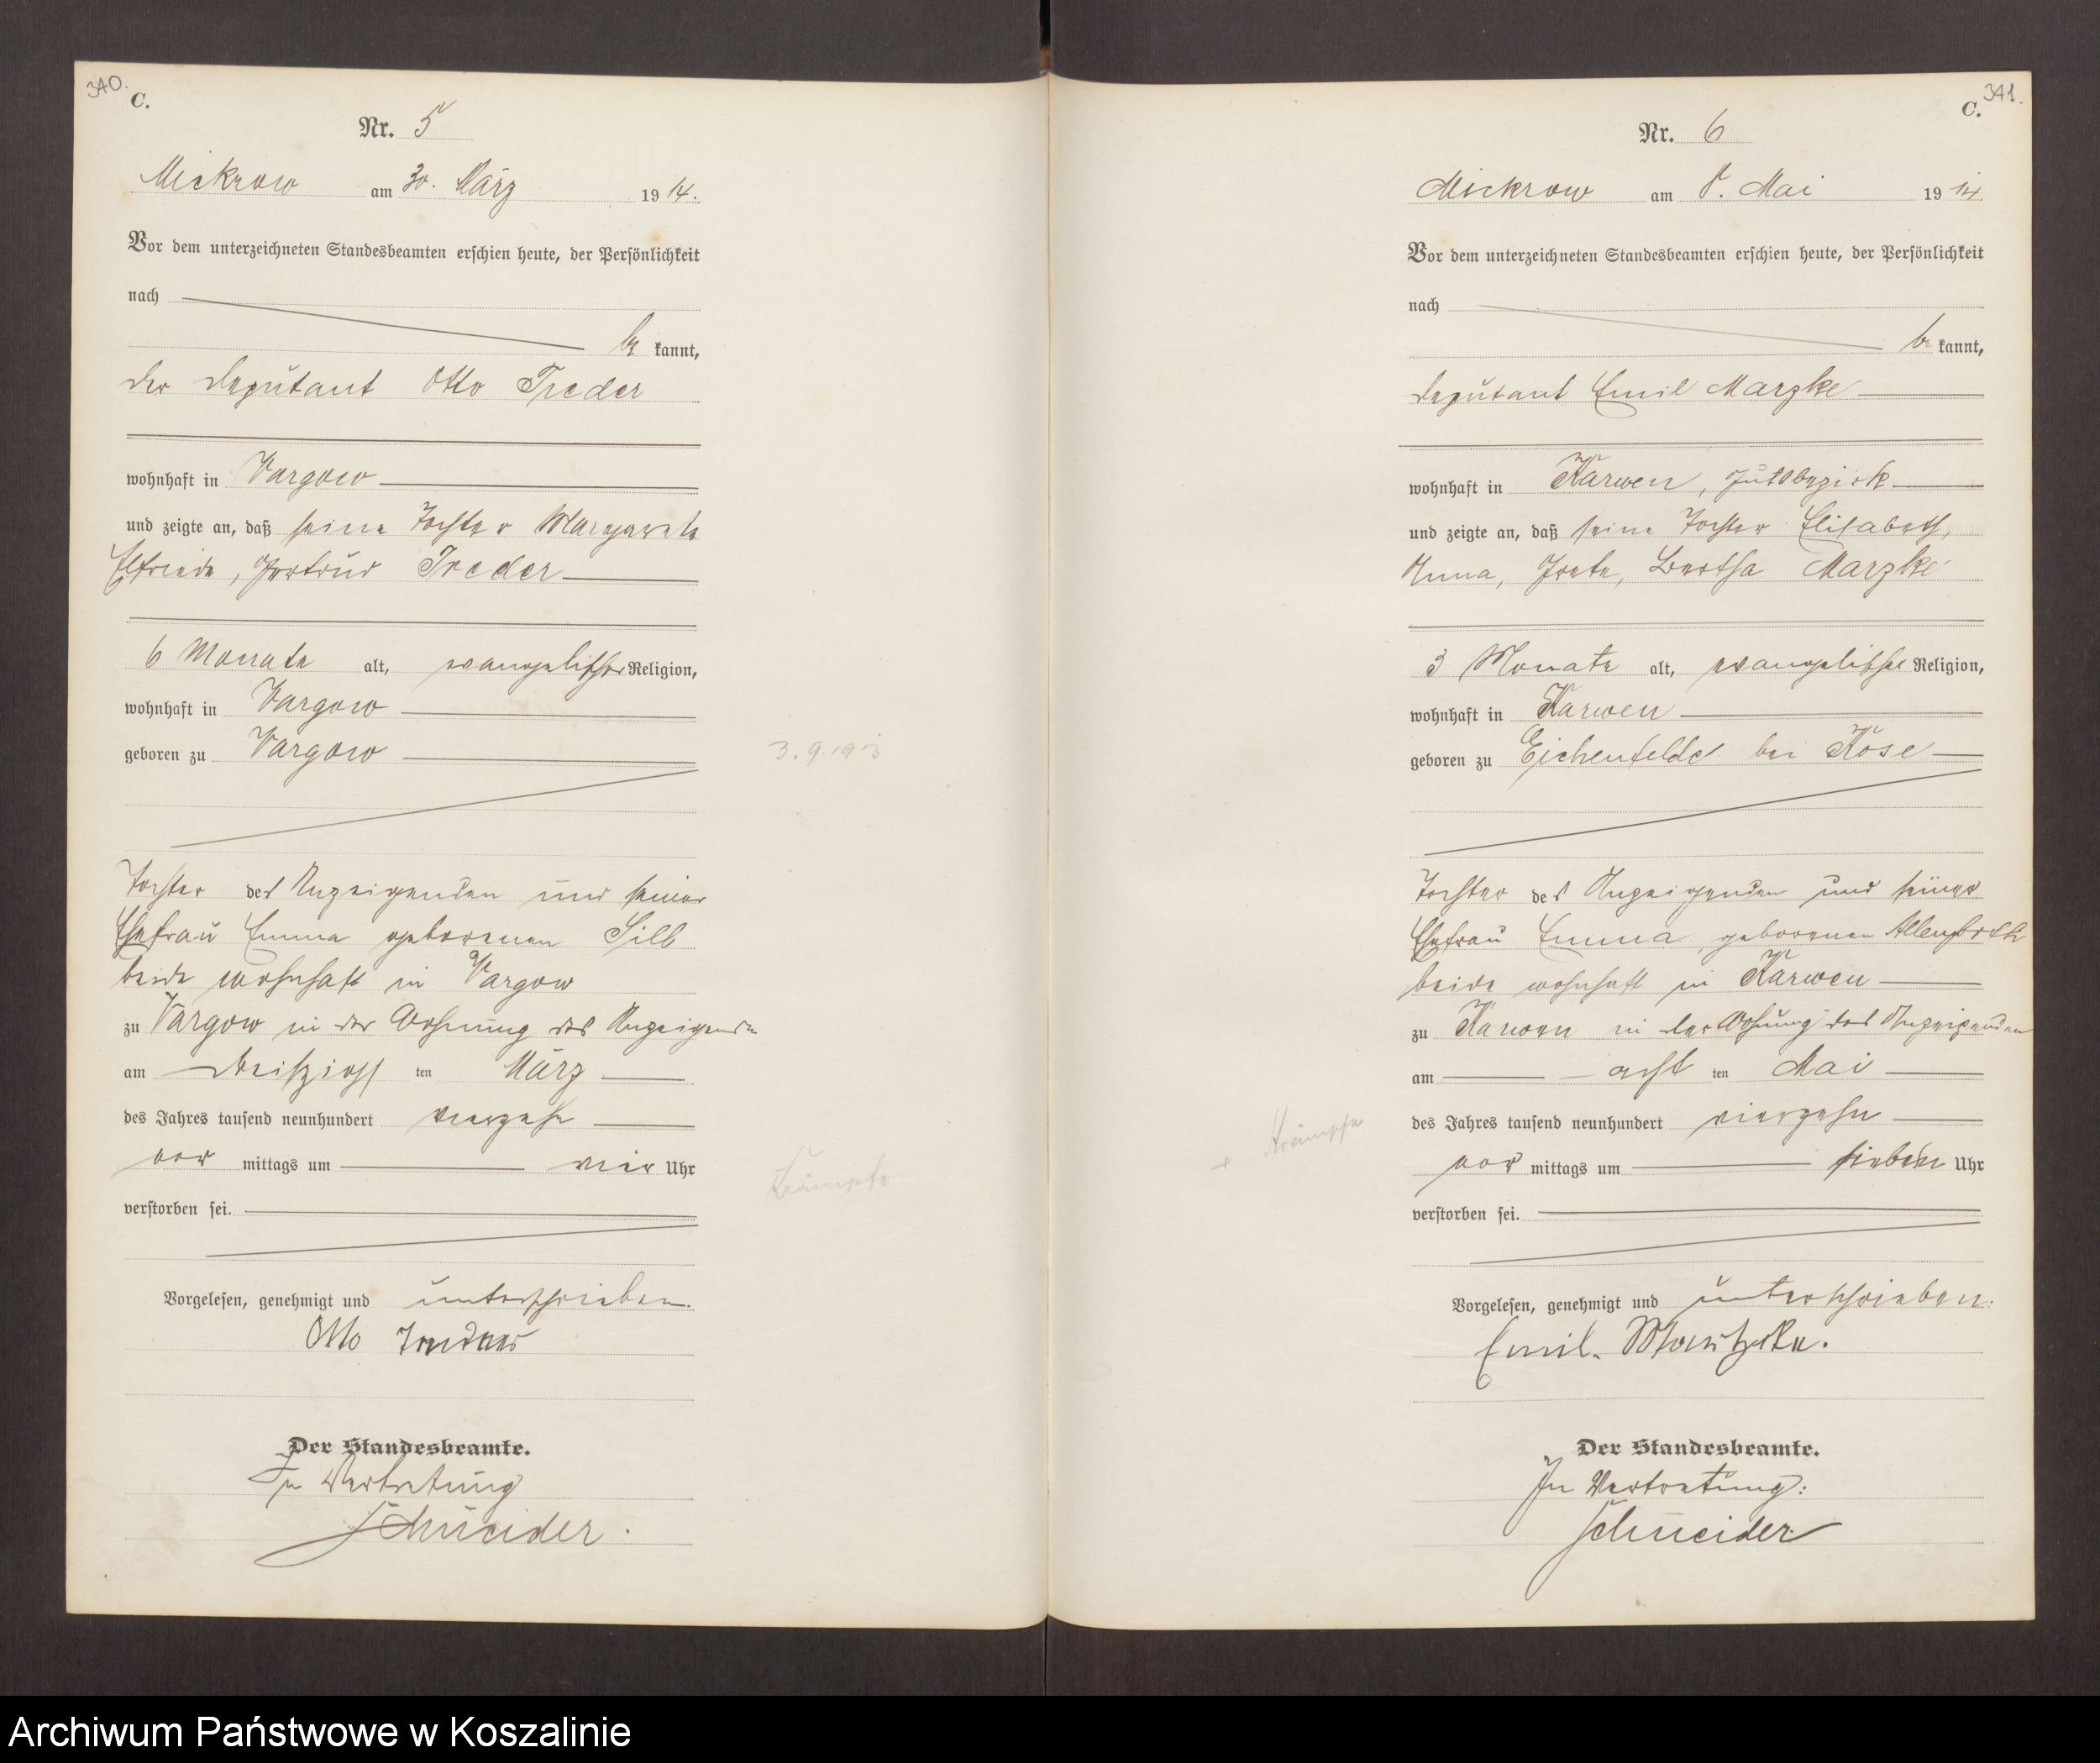 340.
C.
Nr. 5
Mickrow am 30. März 1914.
Vor dem unterzeichneten Standesbeamten erschien heute, der Persönlichkeit
nach
be kannt,
der Deputant Otto Treder
wohnhaft in Vargow
und zeigte an, daß seine Tochter Margarete
Elfriede, Gertrud Treder
6 Monate alt, evangelischer Religion,
wohnhaft in Vargow
geboren zu Vargow
3.9.1913
Tochter des Anzeigenden und seiner
Ehefrau Emma geborenen Sill
beide wohnhaft in Vargow
zu Vargow in der Wohnung des Anzeigenden
am dreißigst ten März
des Jahres tausend neunhundert vierzehn
vor mittags um vier Uhr
Krämpfe
verstorben sei.
Vorgelesen, genehmigt und unterschrieben.
Otto Treder
Der Standesbeamte.
In Vertretung
Schneider.
341.
C.
Nr. 6
Mickrow am 8. Mai 1914
Vor dem unterzeichneten Standesbeamten erschien heute, der Persönlichkeit
nach
be kannt,
Deputant Emil Marzke
wohnhaft in Karwen, Gutsbezirk
und zeigte an, daß seine Tochter Elisabeth,
Anna, Grete, Bertha Marzke
3 Monate alt, evangelischer Religion,
wohnhaft in Karwen
geboren zu Eichenfelde bei Kose
Tochter des Anzeigenden und seiner
Ehefrau Emma, geborenen
beide wohnhaft in Karwen
zu Karwen in der Wohnung des Anzeigenden
am acht ten Mai
des Jahres tausend neunhundert vierzehn
Krämpfe
vor mittags um sieben Uhr
verstorben sei.
Vorgelesen, genehmigt und unterschrieben:
Emil. Martzke.
Der Standesbeamte.
In Vertretung:
Schneider
Archiwum Państwowe w Koszalinie